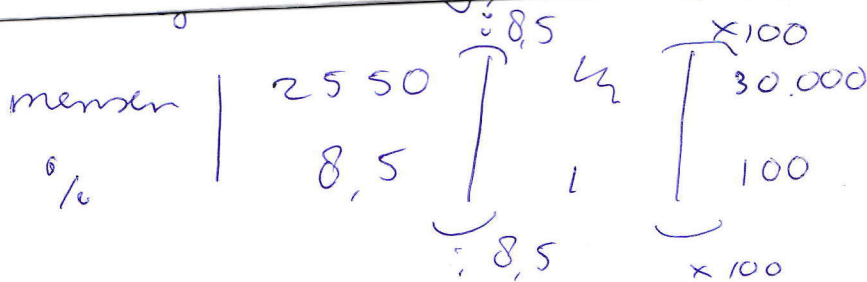 : 8,5 ×100
mensen 2550 30.000
% 8,5 1 100
: 8,5 × 100